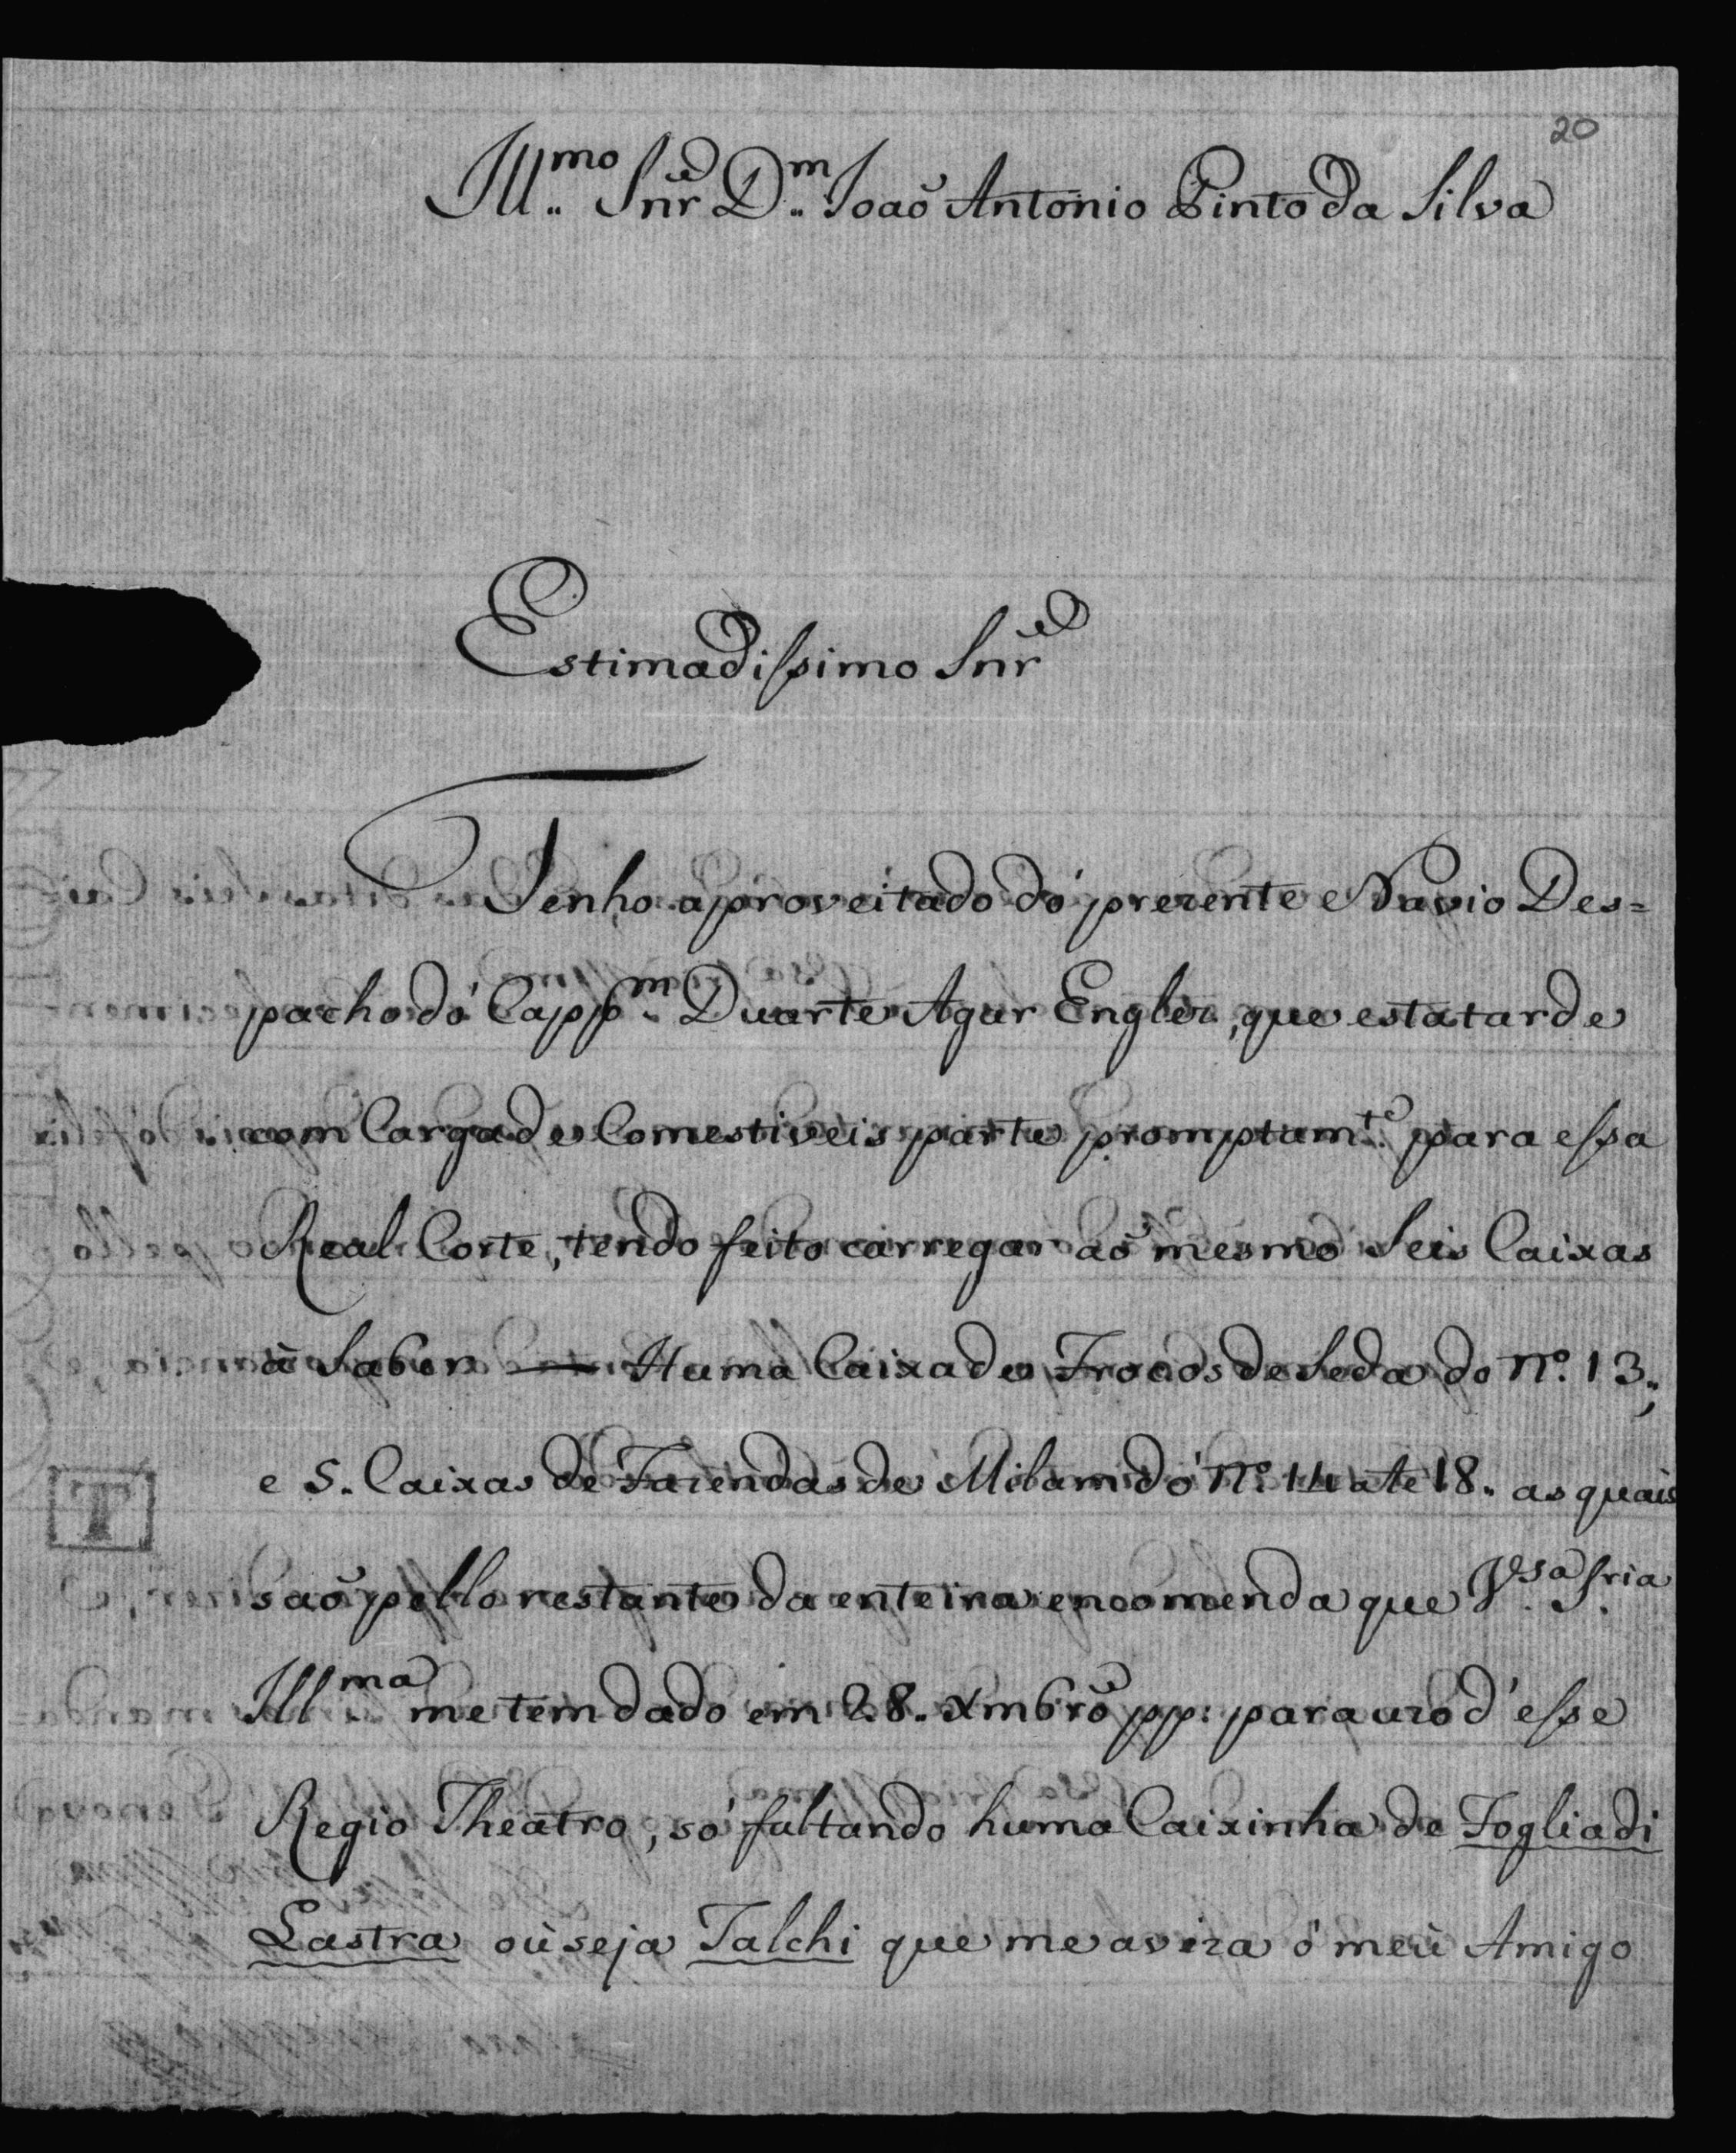 20
Ill.mo Snr̃e D.m Joaõ Antonio Pinto da Silva
Estimadissimo Snr̃e
Tenho aproveitado dó prezente Navio Des=
pacho dó Capp.m Duarte Agar Englez, que esta tarde
com Carga de Comestiveis parte promptam.te para essa
Real Corte, tendo feito carregar aó mesmo Seis Caixas
à Saber — Huma Caixa de Frocos de Seda do N.º 13.,
e 5. Caixas de Fazendas de Milam dó N.º 14 ate 18. as quais
saõ pello restante da enteira encomenda que V.sa S.ria
Ill.ma me tem dado em 28. Xmbrõ pp: para uzo d'esse
Regio Theatro, só faltando huma Caixinha de Fogliadi
T
Lastra où seja Talchi que me aviza ó meù Amigo